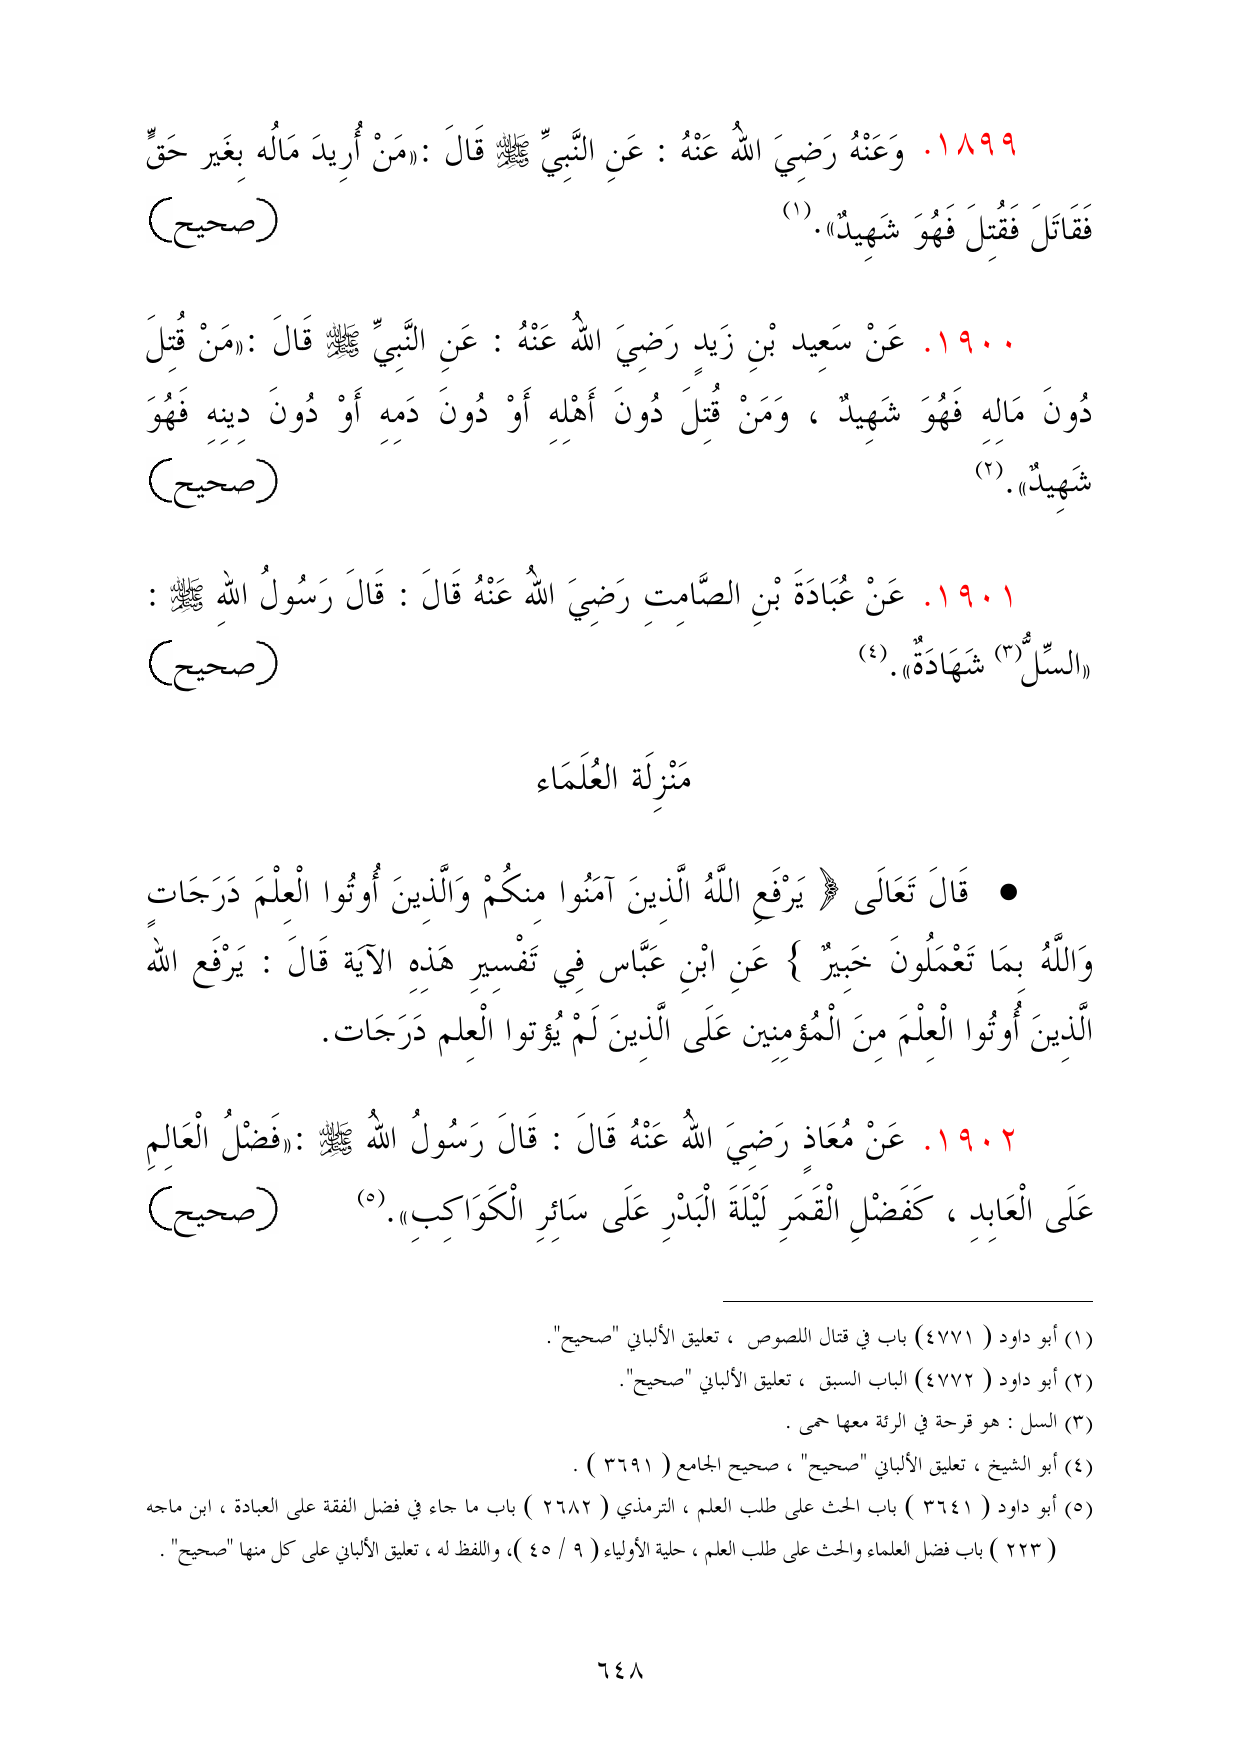 ١٨٩٩. وَعَنْهُ رَضِيَ اللهُ عَنْهُ : عَنِ النَّبِيِّ ﷺ قَالَ :«مَنْ أُرِيدَ مَالُه بِغَير حَقٍّ
فَقَاتَلَ فَقُتِلَ فَهُوَ شَهِيدٌ».(١) (صحيح)
١٩٠٠. عَنْ سَعِيد بْنِ زَيدٍ رَضِيَ اللهُ عَنْهُ : عَنِ النَّبِيِّ ﷺ قَالَ :«مَنْ قُتِلَ
دُونَ مَالِهِ فَهُوَ شَهِيدٌ ، وَمَنْ قُتِلَ دُونَ أَهْلِهِ أَوْ دُونَ دَمِهِ أَوْ دُونَ دِينِهِ فَهُوَ
شَهِيدٌ».(٢) (صحيح)
١٩٠١. عَنْ عُبَادَةَ بْنِ الصَّامِتِ رَضِيَ اللهُ عَنْهُ قَالَ : قَالَ رَسُولُ اللهِ ﷺ :
«السِّلُّ(٣) شَهَادَةٌ».(٤) (صحيح)
مَنْزِلَة العُلَمَاء
● قَالَ تَعَالَى ﴿ يَرْفَعِ اللَّهُ الَّذِينَ آمَنُوا مِنكُمْ وَالَّذِينَ أُوتُوا الْعِلْمَ دَرَجَاتٍ
وَاللَّهُ بِمَا تَعْمَلُونَ خَبِيرٌ } عَنِ ابْنِ عَبَّاس فِي تَفْسِيرِ هَذِهِ الآيَة قَالَ : يَرْفَع الله
الَّذِينَ أُوتُوا الْعِلْمَ مِنَ الْمُؤمِنِين عَلَى الَّذِينَ لَمْ يُؤتوا الْعِلم دَرَجَات.
١٩٠٢. عَنْ مُعَاذٍ رَضِيَ اللهُ عَنْهُ قَالَ : قَالَ رَسُولُ اللهُ ﷺ :«فَضْلُ الْعَالِمِ
عَلَى الْعَابِدِ ، كَفَضْلِ الْقَمَرِ لَيْلَةَ الْبَدْرِ عَلَى سَائِرِ الْكَوَاكِبِ».(٥) (صحيح)
(١) أبو داود ( ٤٧٧١) باب في قتال اللصوص ، تعليق الألباني "صحيح".
(٢) أبو داود ( ٤٧٧٢) الباب السبق ، تعليق الألباني "صحيح".
(٣) السل : هو قرحة في الرئة معها حمى .
(٤) أبو الشيخ ، تعليق الألباني "صحيح" ، صحيح الجامع ( ٣٦٩١ ) .
(٥) أبو داود ( ٣٦٤١ ) باب الحث على طلب العلم ، الترمذي ( ٢٦٨٢ ) باب ما جاء في فضل الفقة على العبادة ، ابن ماجه
( ٢٢٣ ) باب فضل العلماء والحث على طلب العلم ، حلية الأولياء ( ٩ / ٤٥ )، واللفظ له ، تعليق الألباني على كل منها "صحيح" .
٦٤٨